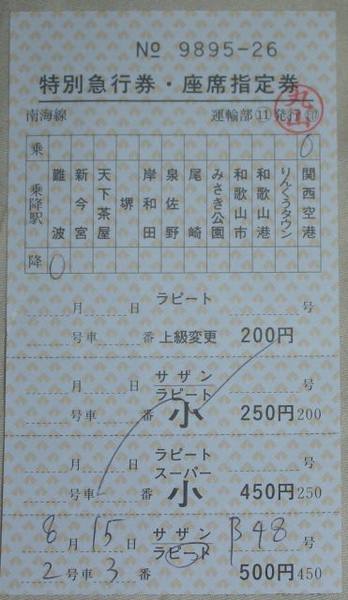 № 9895-26
特別急行券・座席指定券
南海線 運輸部⑪発行⑩
丸山
乗 0
乗降駅 難波 新今宮 天下茶屋 堺 岸和田 泉佐野 尾崎 みさき公園 和歌山市 和歌山港 りんくうタウン 関西空港
降 0
月 日 ラピート 号
号車 番 上級変更 200円
月 日 サザン ラピート 号
号車 番 小 250円200
月 日 ラピート スーパー 号
号車 番 小 450円250
8月15日 サザン ラピート β48号
2号車3番 500円450